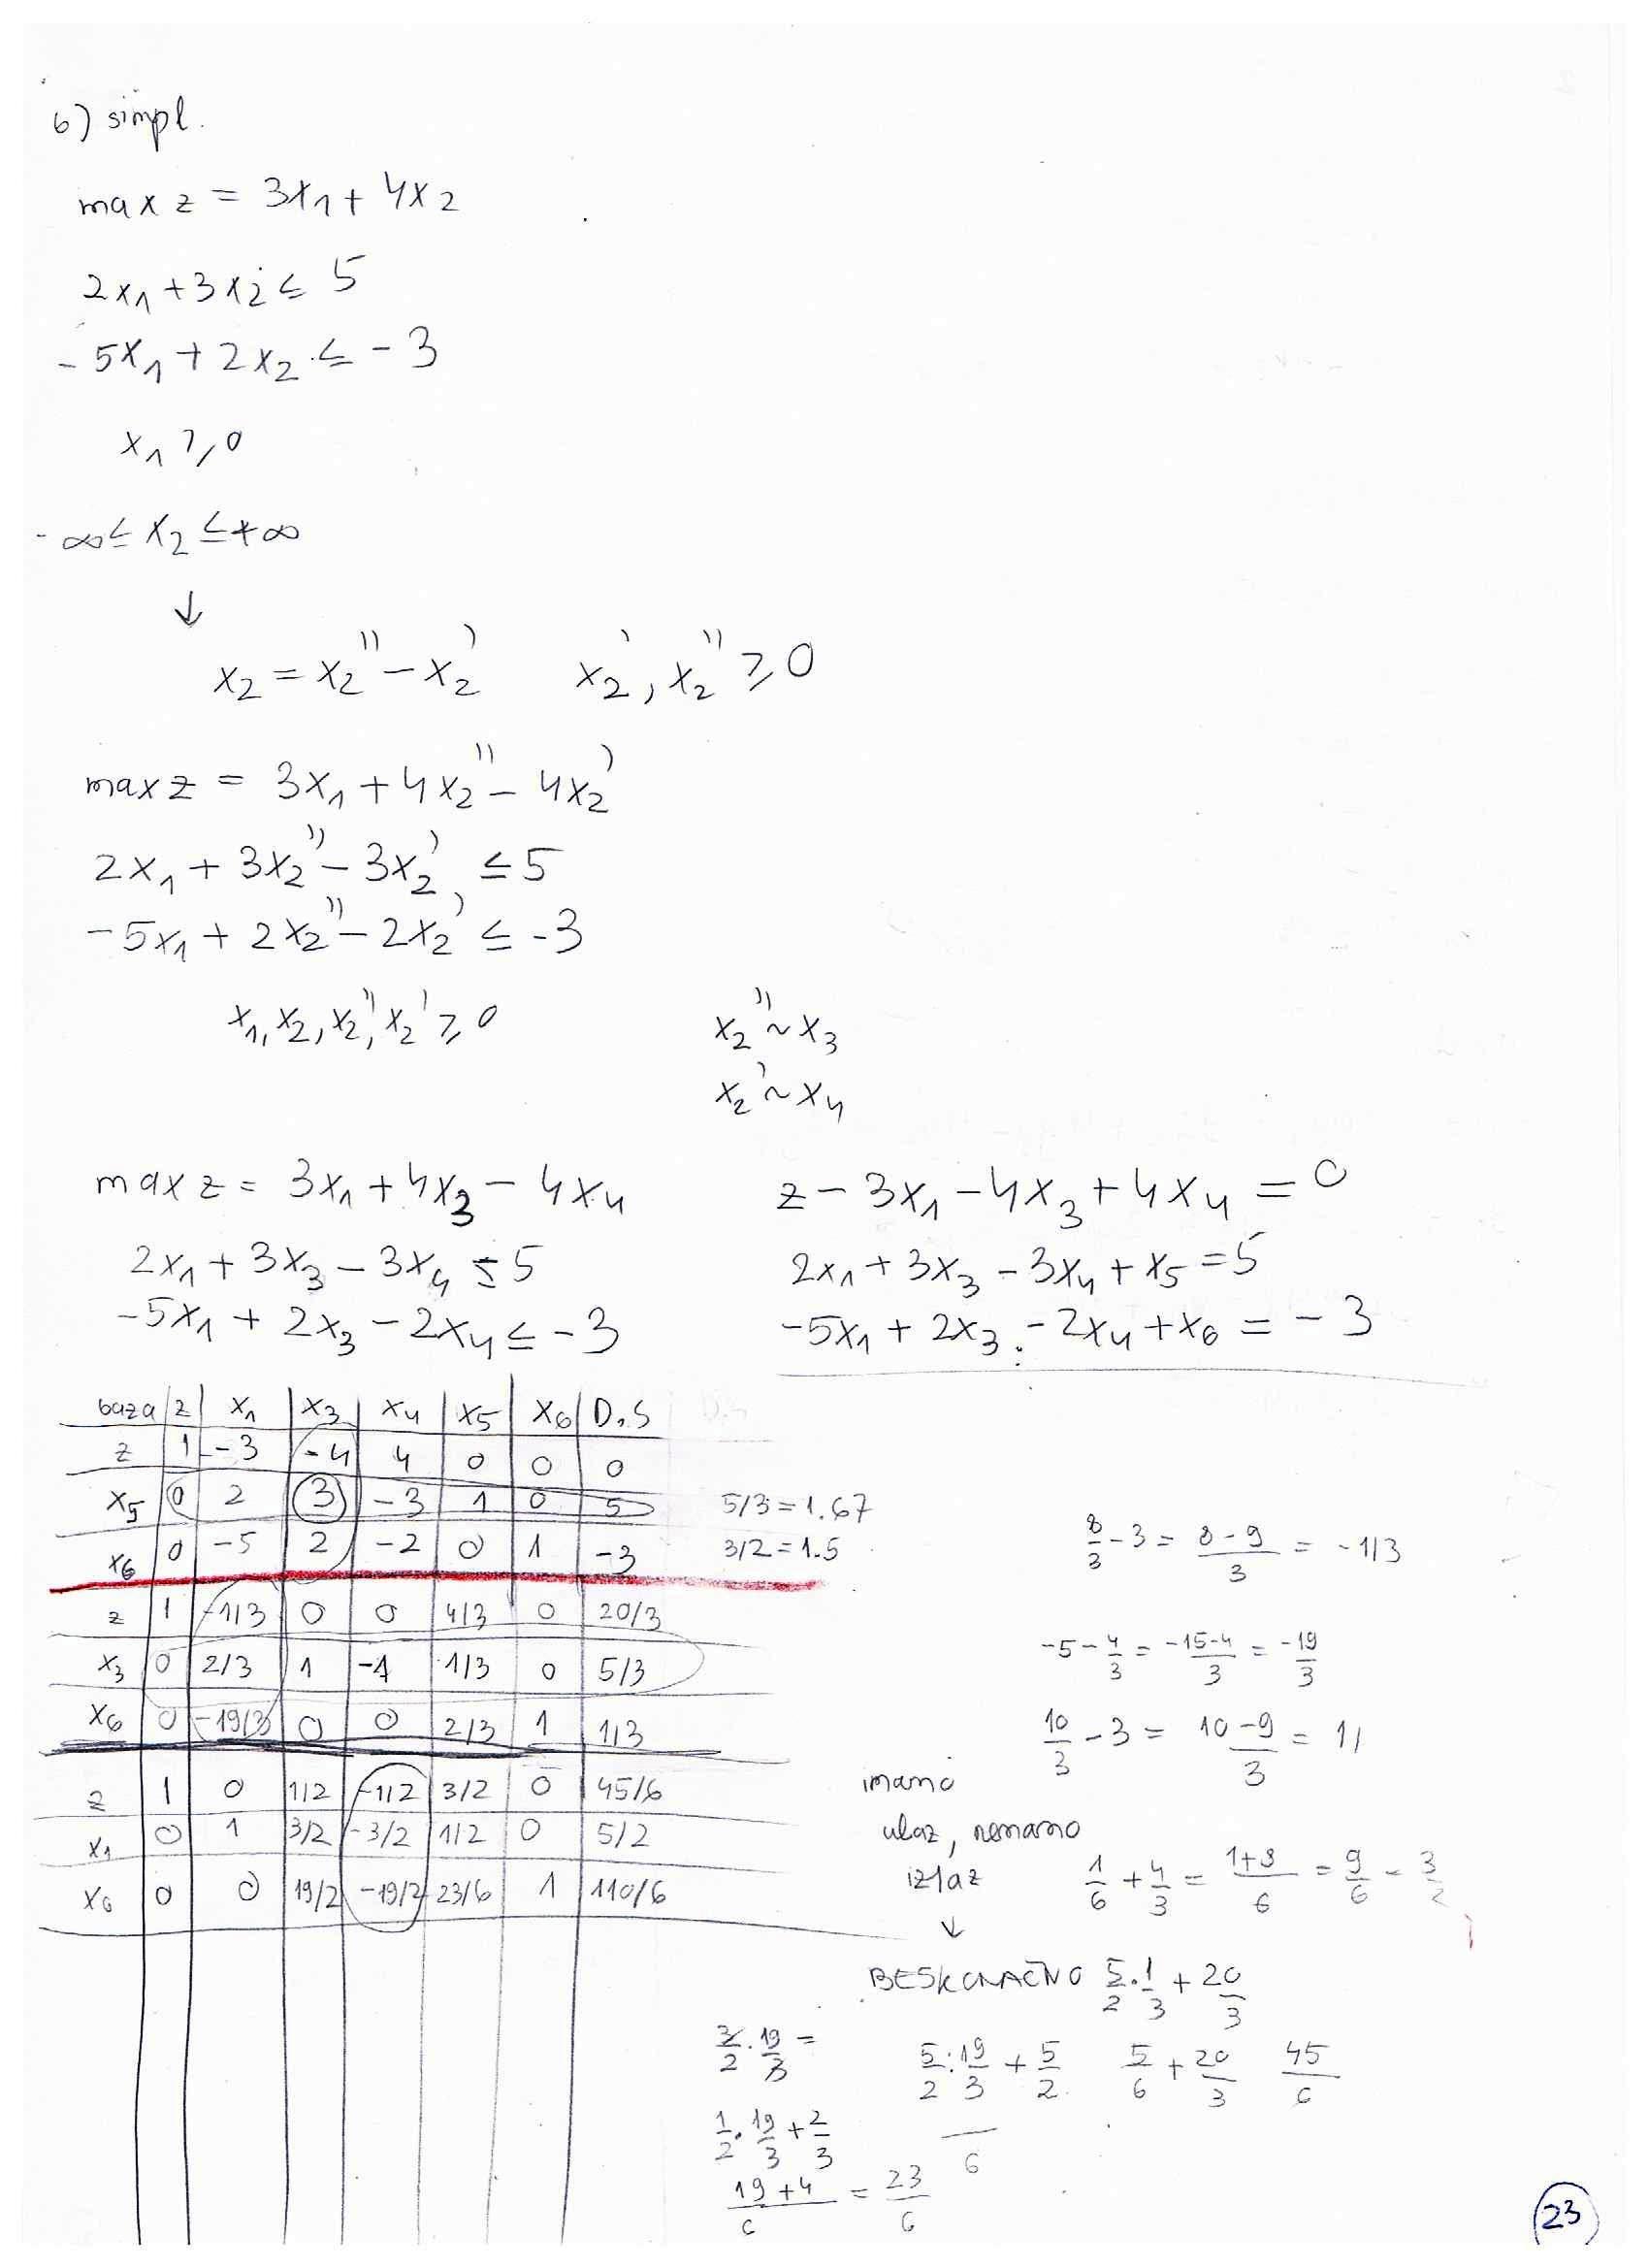 6) simpl.
max z = 3x₁ + 4x₂
2x₁ + 3x₂ ≤ 5
-5x₁ + 2x₂ ≤ -3
x₁ ≥ 0
-∞ ≤ x₂ ≤ +∞
↓
x₂ = x₂'' - x₂' x₂', x₂'' ≥ 0
max z = 3x₁ + 4x₂'' - 4x₂'
2x₁ + 3x₂'' - 3x₂' ≤ 5
-5x₁ + 2x₂'' - 2x₂' ≤ -3
x₁, x₂, x₂'', x₂' ≥ 0
x₂'' ~ x₃
x₂' ~ x₄
max z = 3x₁ + 4x₃ - 4x₄
2x₁ + 3x₃ - 3x₄ ≤ 5
-5x₁ + 2x₃ - 2x₄ ≤ -3
z - 3x₁ - 4x₃ + 4x₄ = 0
2x₁ + 3x₃ - 3x₄ + x₅ = 5
-5x₁ + 2x₃ - 2x₄ + x₆ = -3
baza | z | x₁ | x₃ | x₄ | x₅ | x₆ | D.S
z | 1 | -3 | -4 | 4 | 0 | 0 | 0
x₅ | 0 | 2 | 3 | -3 | 1 | 0 | 5 5/3 = 1.67
x₆ | 0 | -5 | 2 | -2 | 0 | 1 | -3 3/2 = 1.5
z | 1 | -1/3 | 0 | 0 | 4/3 | 0 | 20/3
x₃ | 0 | 2/3 | 1 | -1 | 1/3 | 0 | 5/3
x₆ | 0 | -19/3 | 0 | 0 | 2/3 | 1 | 1/3
z | 1 | 0 | 1/2 | -1/2 | 3/2 | 0 | 45/6
x₁ | 0 | 1 | 3/2 | -3/2 | 1/2 | 0 | 5/2
x₆ | 0 | 0 | 19/2 | -19/2 | 23/6 | 1 | 110/6
8/3 - 3 = (8-9)/3 = -1/3
-5 - 4/3 = (-15-4)/3 = -19/3
10/3 - 3 = (10-9)/3 = 1/
imamo
ulaz, nemamo
izlaz
↓
BESKONAČNO
1/6 + 4/3 = (1+8)/6 = 9/6 = 3/2
5/2 · 1/3 + 20/3
3/2 · 19/3 =
5/2 · 19/3 + 5/2
5/6 + 20/3 45/6
1/2 · 19/3 + 2/3
6
(19+4)/6 = 23/6
23